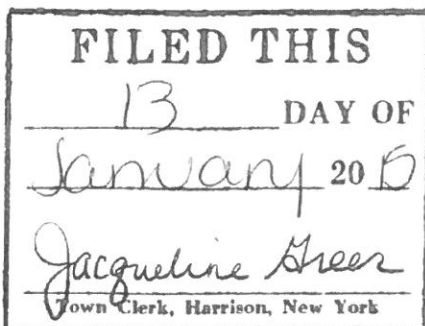 FILED THIS
13 DAY OF
January 20
Jacqueline Greer
Town Clerk, Harrison, New York